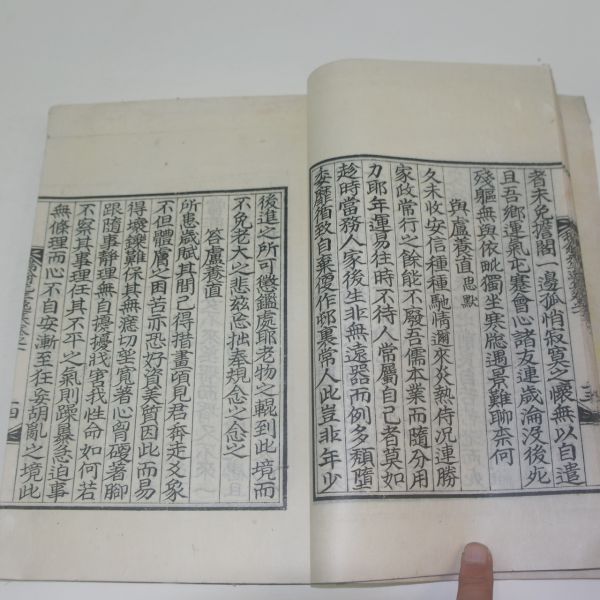 者未免擔閣一邊孤悄寂寞之懷無以自遣
且吾鄕運氣屯蹇會心諸友連歲淪沒後死
殘軀無與依毗獨坐寒牕遇景難聊柰何
與盧養直 思默
久未收安信種種馳情邇來炎熱侍況連勝
家政常行之餘能不廢吾儒本業而隨分用
力耶年運易往時不待人常屬自己者莫如
趁時當務人家後生非無遠器而例多頹墮
委靡循致自棄便作鄙裏常人此豈非年少
後進之所可懲鑑處耶老物之輥到此境而
不免老大之悲玆忘拙奉規念之念之
答盧養直
所患葳賦其間已得措畫頃見君奔走爻象
不但體膚之困苦亦恐好資美質因此而易
得壞鑠難保其無窓切望寬著心胷硬著脚
跟隨事靜理無自擾擾戕害我性命如何若
不察其事理任其不平之氣則躁暴急迫事
無條理而心不自安漸至在安胡亂之境此